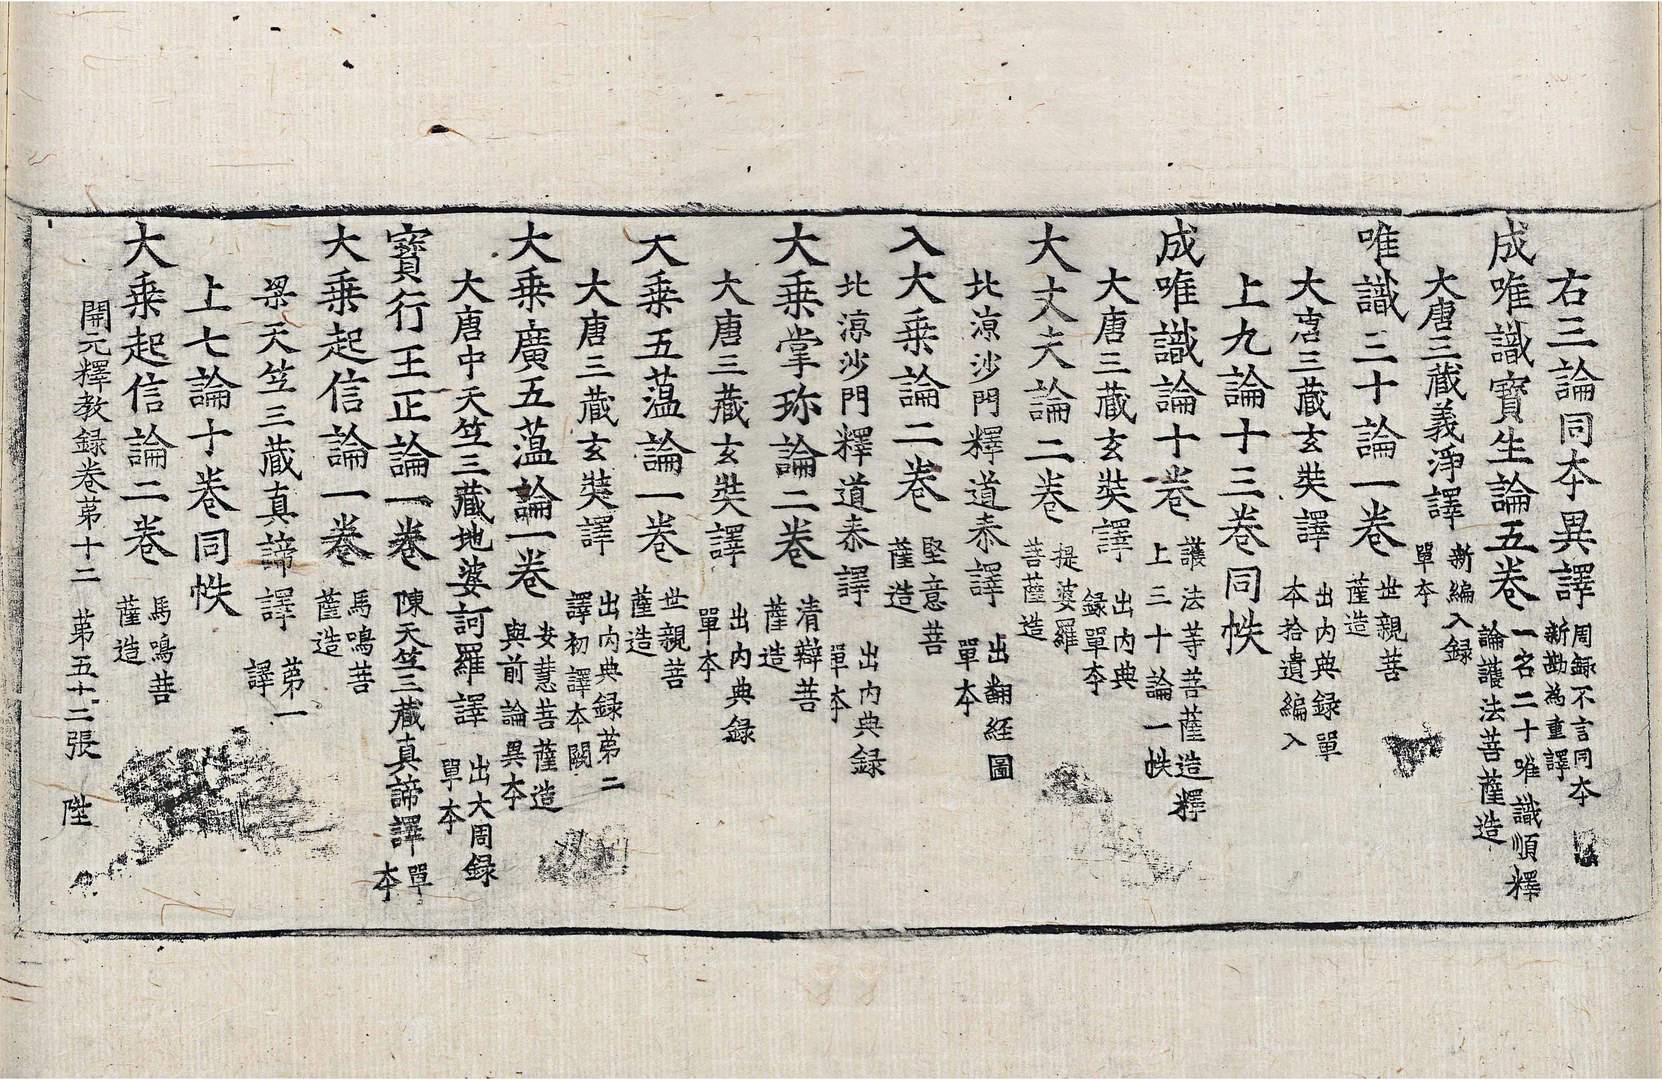 右三論同夲異譯周錄不言同夲新勘為重譯
成唯識寶生論五卷一名二十唯識順釋論護法菩薩造
大唐三藏義淨譯新編入録單夲
唯識三十論一卷世親菩薩造
大唐三藏玄奘譯出內典録單本拾遺編入
上九論十三卷同帙
成唯識論十卷護法等菩薩造釋上三十論一帙
大唐三藏玄奘譯出內典録單夲
大丈夫論二卷提婆羅菩薩造
北涼沙門釋道泰譯出翻經圖單夲
入大乗論二卷堅意菩薩造
北涼沙門釋道泰譯出內典録單夲
大乗掌珎論二卷清辯菩薩造
大唐三藏玄奘譯出內典録單夲
大乗五薀論一卷世親菩薩造
大唐三藏玄奘譯出內典録苐二譯初譯夲闕
大乗廣五薀論一卷安慧菩薩造與前論異夲
大唐中天竺三藏地婆訶羅譯出大周録單夲
寶行王正論一卷陳天竺三藏真諦譯單夲
大乗起信論一卷馬鳴菩薩造
梁天竺三藏真諦譯苐一譯
上七論十卷同帙
大乗起信論二卷馬鳴菩薩造
開元釋教録卷苐十二 苐五十二張 陞